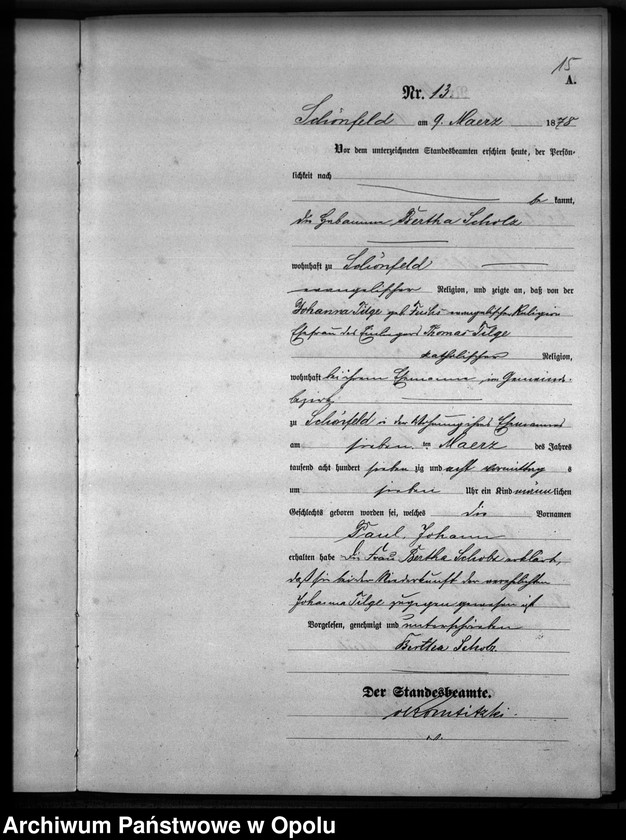 15
A.
Nr. 13.
Schönfeld am 9. Maerz 1878
Vor dem unterzeichneten Standesbeamten erschien heute, der Persön-
lichkeit nach
be kannt,
die Hebamme Bertha Scholz
wohnhaft zu Schönfeld
evangelischer Religion, und zeigte an, daß von der
Johanna Tilge geb. Fuchs evangelischer Religion
Ehefrau des Einlegers Thomas Tilge
katholischer Religion,
wohnhaft bei ihrem Ehemanne im Gemeinde-
bezirk
zu Schönfeld in der Wohnung ihres Ehemannes
am sieben ten Maerz des Jahres
tausend acht hundert sieben zig und acht vormittag s
um sieben Uhr ein Kind männlichen
Geschlechts geboren worden sei, welches die Vornamen
Paul, Johann
erhalten habe Die Frau Bertha Scholz erklärt,
daß sie bei der Niederkunft der verehelichten
Johanna Tilge zugegen gewesen ist
Vorgelesen, genehmigt und unterschrieben
Bertha Scholz
Der Standesbeamte.
Archiwum Państwowe w Opolu